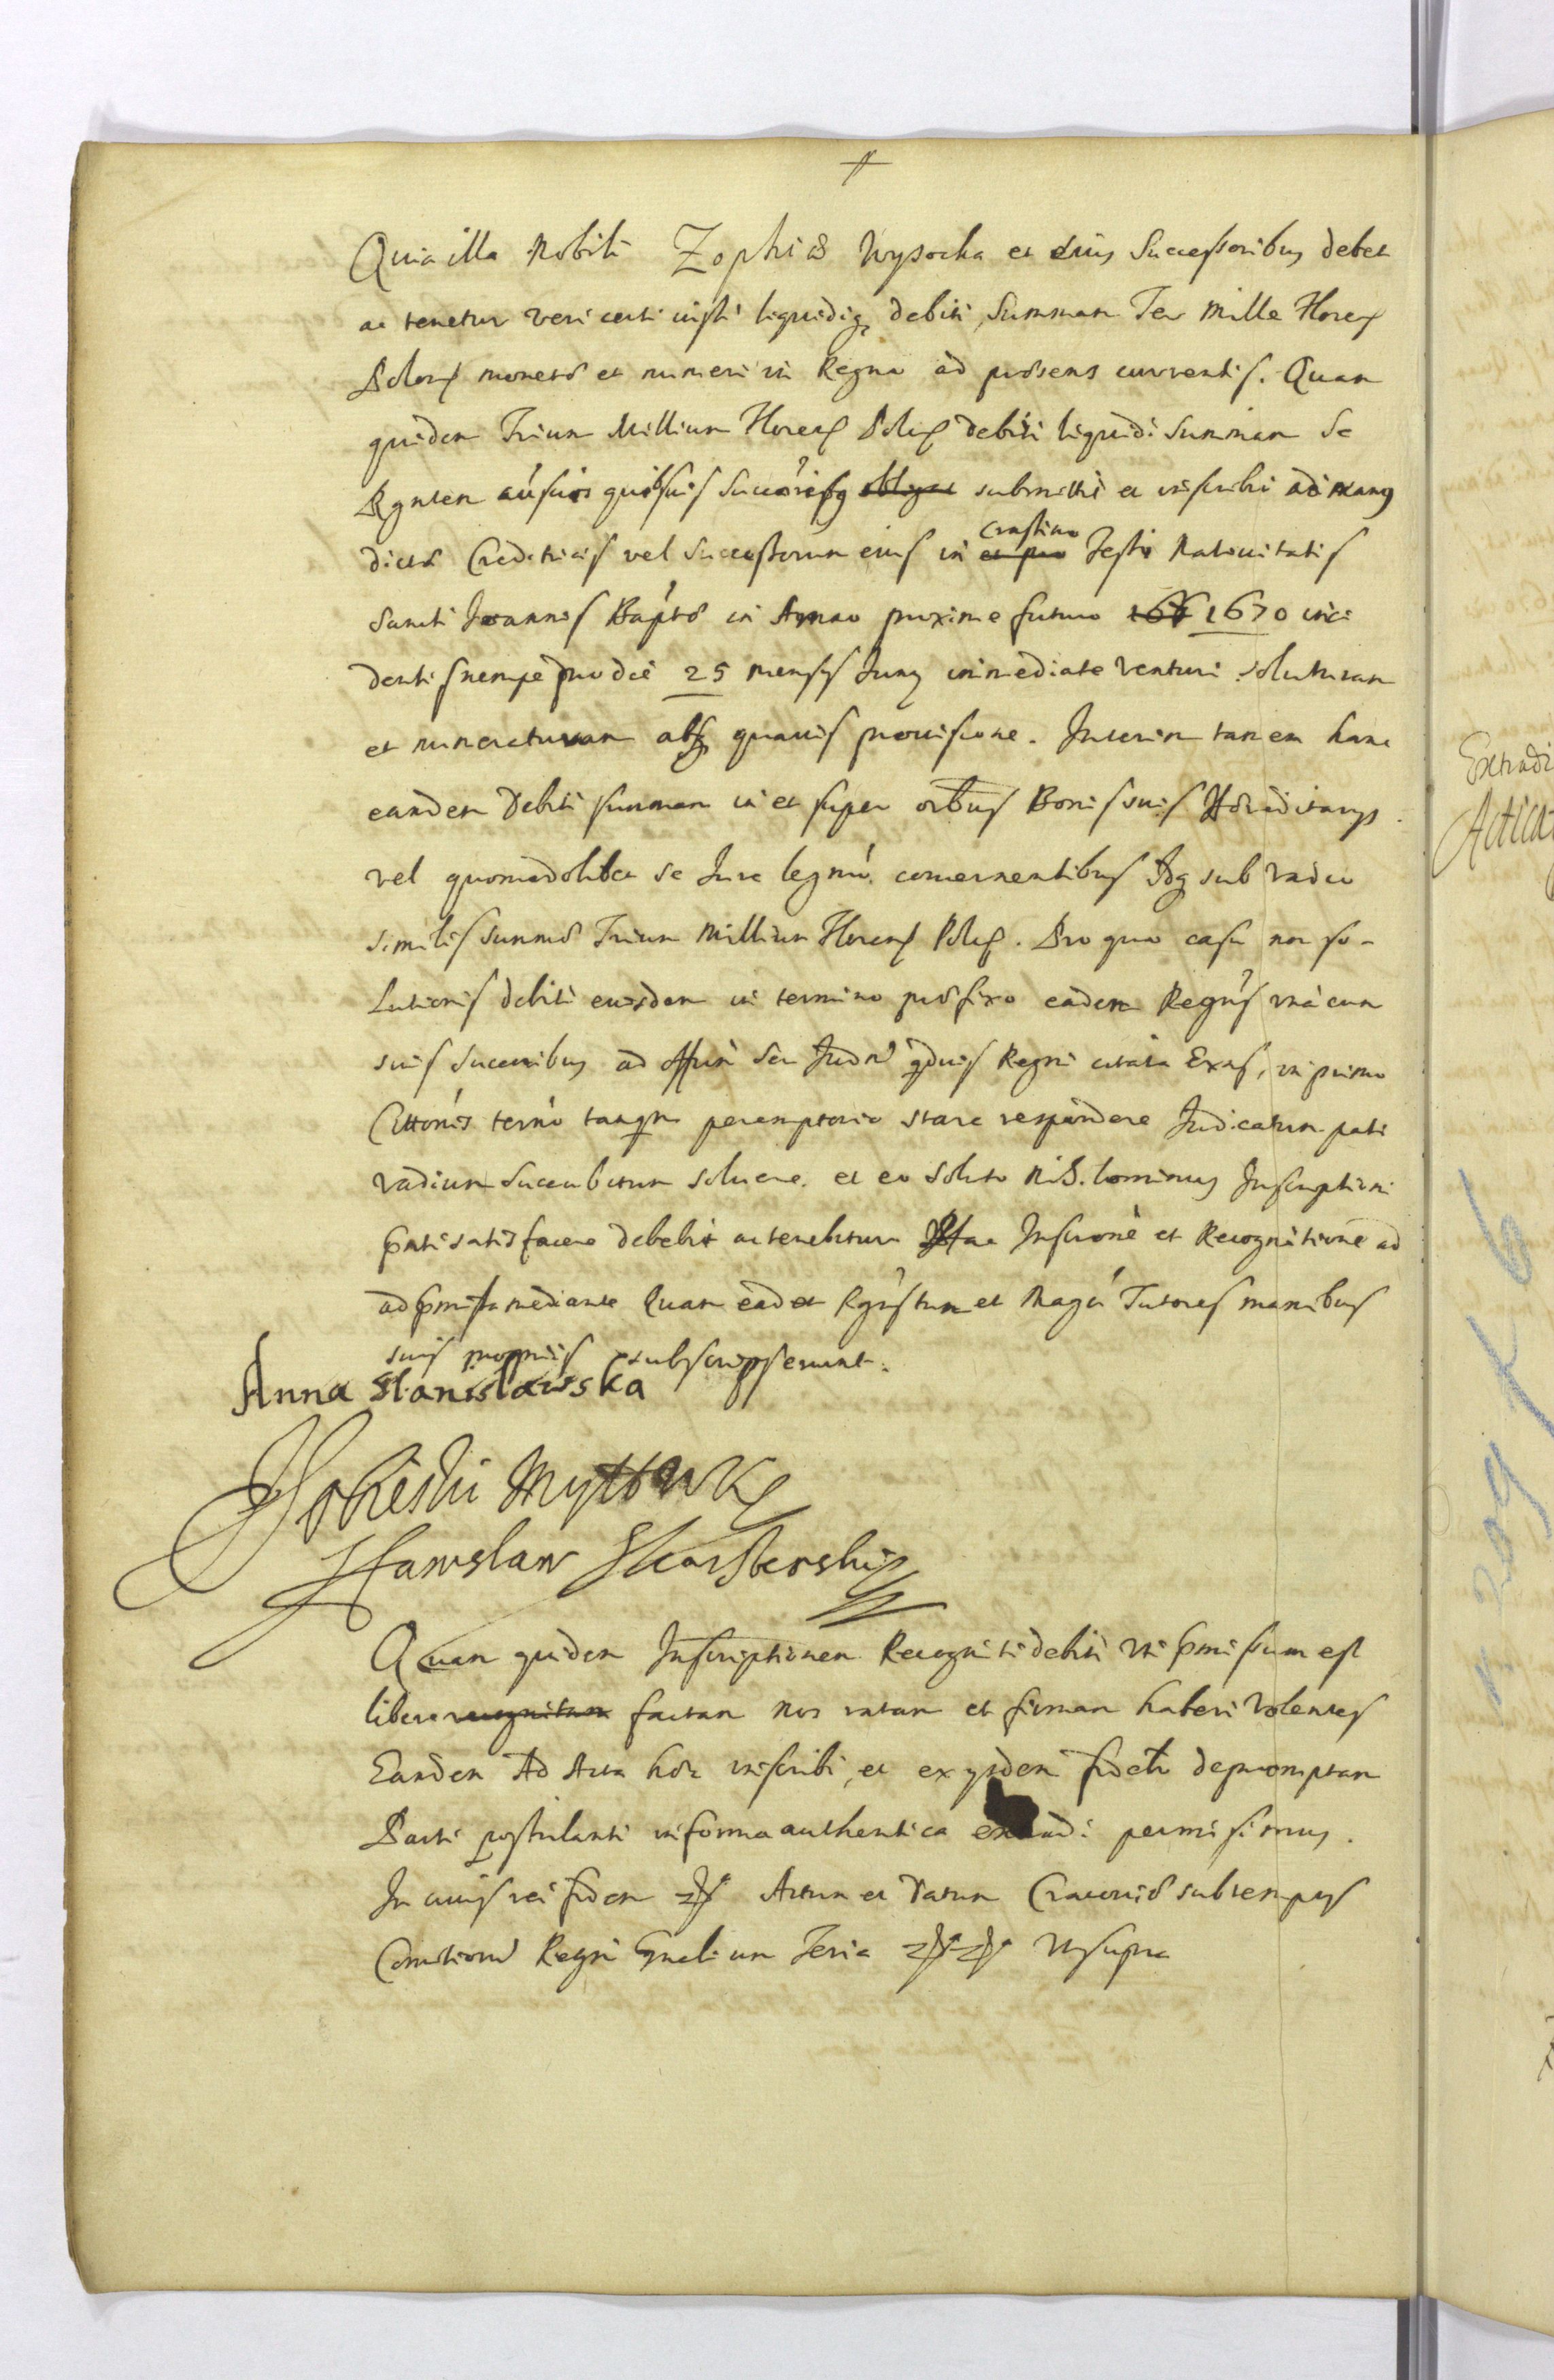 Quia illa Nobili Zophiæ Wysocka et eius Successoribus debet
ac tenetur veri certi iusti liquidiq debiti Summam Ter Mille Floren
Polon monetæ et numeri in Regno ad præsens currentis. Quam
quidem Trium Millium Floren Polon debiti liquidi Summam Se
submitti et inscribi ad manus
dictæ Creditricis vel Successorum eius in crastino Festi Nativitatis
Sancti Joannis Baptæ in Anno proxime futuro 1670 inci
dentis nempe pro die 25 mensis Juny immediate venturi soluturam
et numeraturam absq quavis provisione. Interim tamen hanc
eandem debiti summam in et super oibus Bonis suis Hæreditarys
vel quomodolibet se Jure legmo concernentibus Idq sub vadio
similis summæ Trium Millium Floren Polon. Pro quo casu non so-
lutionis debiti eiusdem in termino præfixo eadem Regns unacum
suis succoribus ad Offm seu Judm quis Regni citata Exns, in primo
Cittonis termo tanqm peremptorio stare respondere Judicatum pati
vadium succubitum soluere et eo soluto nihilominus Inscriptioni
pnti satisfacere debebit ac tenebitur Hac Inscrone et Recognitione ad
ad pmissa mediante Quam eadem Rgns tum et Magci Tutores manibus
suis proprijs subscripserunt.
Anna Stanisławska
Stanislaw
Quam quidem Inscriptionem Recogniti debiti uti pmissum est
libere recognitam factam nos ratam et firmam haberi volentes
Eandem Ad Acta hæc inscribi, et ex ysdem fidelr depromptam
Parti postulanti in forma authentica extradi permisimus.
In cuius rei fidem Actum et Datum Cracoviæ sub tempus
Comitiorum Regni Gnalium Feria Ut supra
Extradi
Acticat